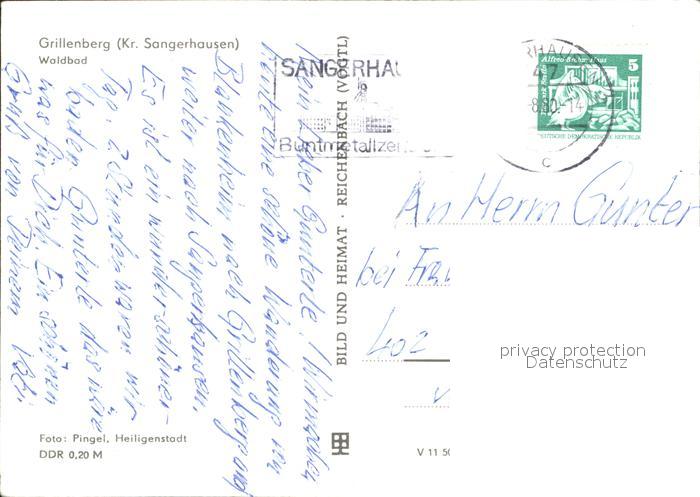 Grillenberg (Kr. Sangerhausen)
Waldbad
Mein lieber Günterle! Wir machen
heute eine schöne Wanderung von
Blankenheim nach Grillenberg und
weiter nach Sangerhausen.
Es ist ein wunder-schöner-
Tag. 2 Stunden waren wir
baden Günterle das wäre
was für Dich. Ein schönen
Gruß von Deinem Vati.
Foto: Pingel, Heiligenstadt
DDR 0,20 M
BILD UND HEIMAT · REICHENBACH (VOGTL)
V 11 50
SANGERHAU
Buntmetallzen
RHAUS
47
8.80.-14
c
Alfred-Brehm-Haus
5
DEUTSCHE DEMOKRATISCHE REPUBLIK
An Herrn Günter
bei Frau
402
privacy protection
Datenschutz